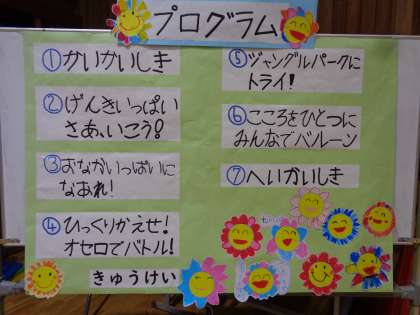 プログラム
①かいかいしき
②げんきいっぱい
さあ、いこう!
③おなかいっぱいに
なあれ!
④ひっくりかえせ!
オセロでバトル!
きゅうけい
⑤ジャングルパークに
トライ!
⑥こころをひとつに
みんなでバルーン
⑦へいかいしき